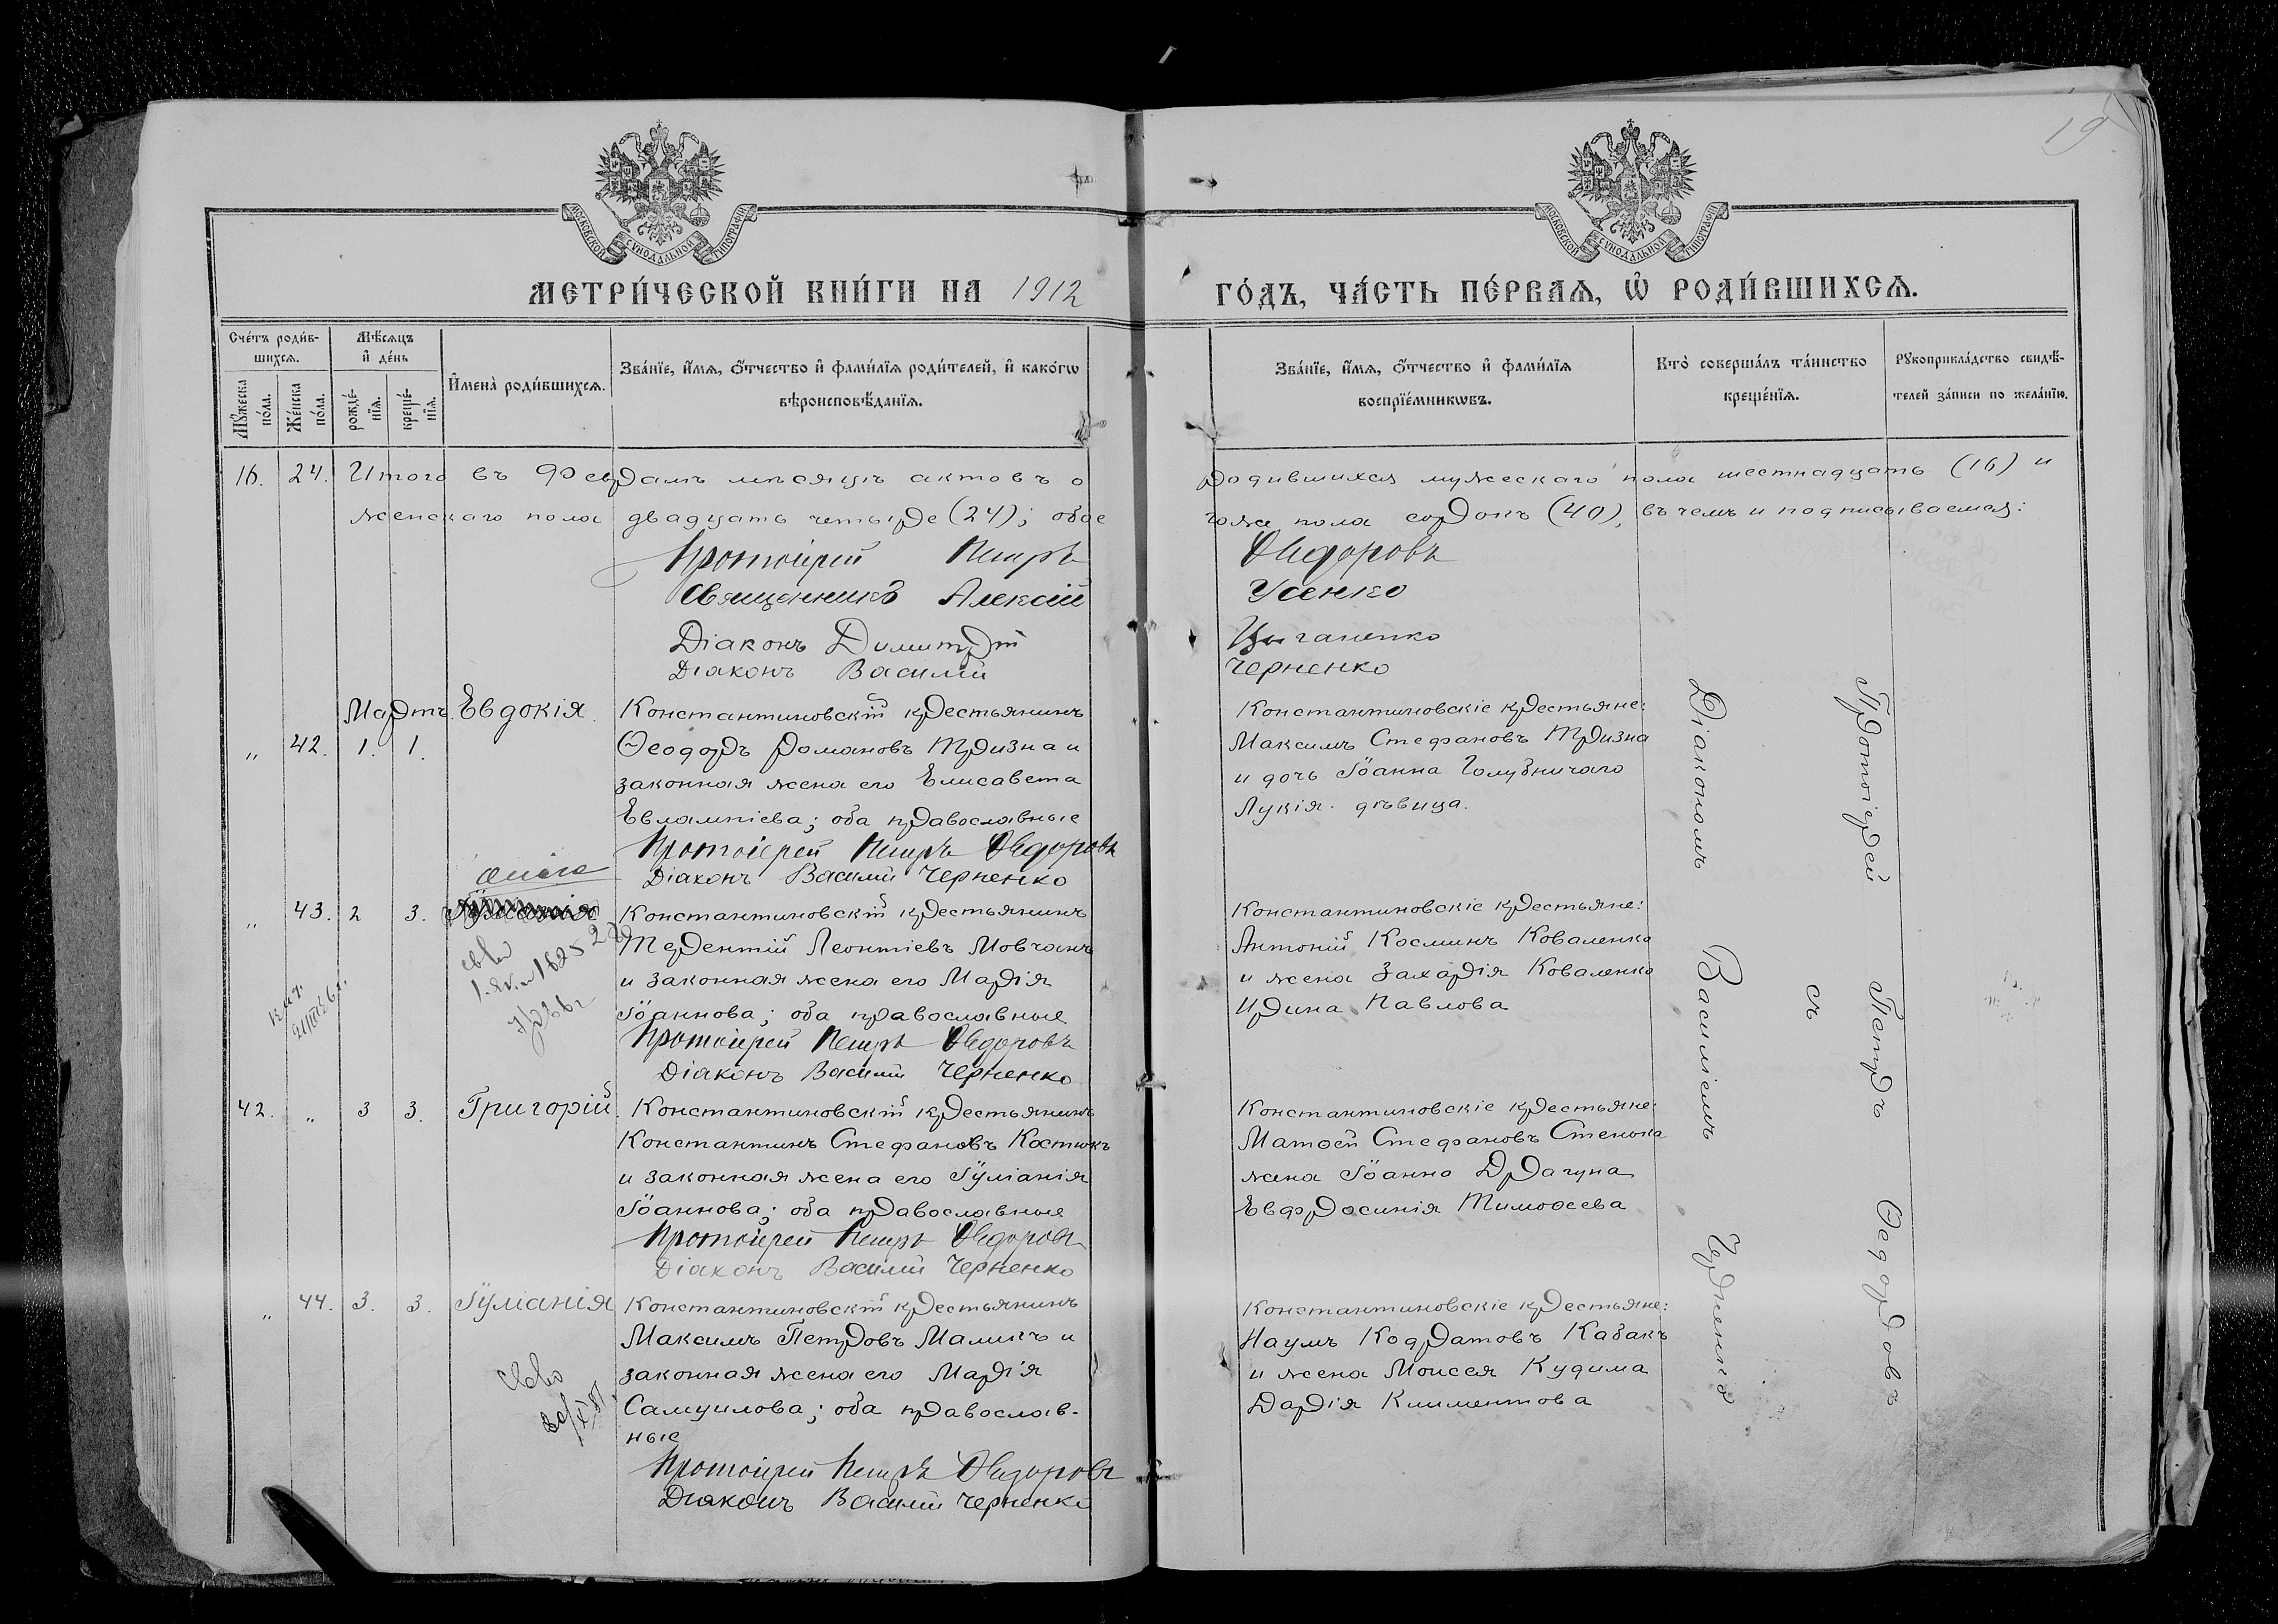 19
МОСКОВСКОЙ СѴНОДАЛЬНОЙ ТИПОГРАФІИ
МОСКОВСКОЙ СѴНОДАЛЬНОЙ ТИПОГРАФІИ
МЕТРИ́ЧЕСКОЙ КНИ́ГИ НА 1912
ГО́ДЪ, ЧА́СТЬ ПЕ́РВАѦ, Ѡ҆ РОДИ́ВШИХСѦ.
Сче́тъ роди́в-
шихсѧ.
Мꙋ́жеска по́ла.
Же́нска по́ла.
Мѣ́сѧцъ
и҆ де́нь
рожде́-
нїѧ.
креще́-
нїѧ.
И҆мена̀ роди́вшихсѧ.
Зва́нїе, и҆́мѧ, ѻ҆́тчество и҆ фами́лїѧ роди́телей, и҆ како́гѡ
вѣроисповѣ́данїѧ.
Зва́нїе, и҆́мѧ, ѻ҆́тчество и҆ фами́лїѧ
воспрїе́мникѡвъ.
Кто̀ соверша́лъ та́инство
креще́нїѧ.
Рꙋкоприкла́дство свидѣ́-
телей за́писи по жела́нїю.
16. 24. Итого въ Февралѣ мѣсяцѣ актовъ о
родившихся мужескаго пола шестнадцать (16) и
женскаго пола двадцать четыре (24); обое
пола сорокъ (40), въ чемъ и подписываемся:
Протоіерей Петръ Ѳедоровъ
Священникъ Алексій Усенко
Діаконъ Димитрій Цыганенко
Діаконъ Василій Черненко
Мартъ. Евдокія.
„ 42. 1. 1.
Константиновскій крестьянинъ
Ѳеодоръ Романовъ Тризна и
законная жена его Елисавета
Евлампіева; оба православные
Протоіерей Петръ Ѳедоровъ
Діаконъ Василій Черненко
Константиновскіе крестьяне:
Максимъ Стефановъ Тризна
и дочь Іоанна Голубничаго
Лукія. дѣвица.
„ 43. 2 3.
Константиновскій крестьянинъ
Терентій Леонтіевъ Мовчанъ
и законная жена его Марія
Іоаннова; оба православные
Протоіерей Петръ Ѳедоровъ
Діаконъ Василій Черненко
Константиновскіе крестьяне:
Антоній Косминъ Коваленко
и жена Захарія Коваленко
Ирина Павлова
42. „ 3 3. Григорій.
Константиновскій крестьянинъ
Константинъ Стефановъ Костюкъ
и законная жена его Іуліанія
Іоаннова; оба православные
Протоіерей Петръ Ѳедоровъ
Діаконъ Василій Черненко
Константиновскіе крестьяне:
Матѳей Стефановъ
жена Іоанна Драгуна
Евфросинія Тимоѳеева
„ 44. 3. 3. Іуліанія
Константиновскій крестьянинъ
Максимъ Петровъ и
законная жена его Марія
Самуилова; оба православ-
ные
Протоіерей Петръ Ѳедоровъ
Діаконъ Василій Черненко
Константиновскіе крестьяне:
Наумъ Кодратовъ Кабакъ
и жена Моисея Кудима
Дарія Климентова
Протоіерей Петръ Ѳеодоровъ
съ
Діакономъ Василіемъ Черненко